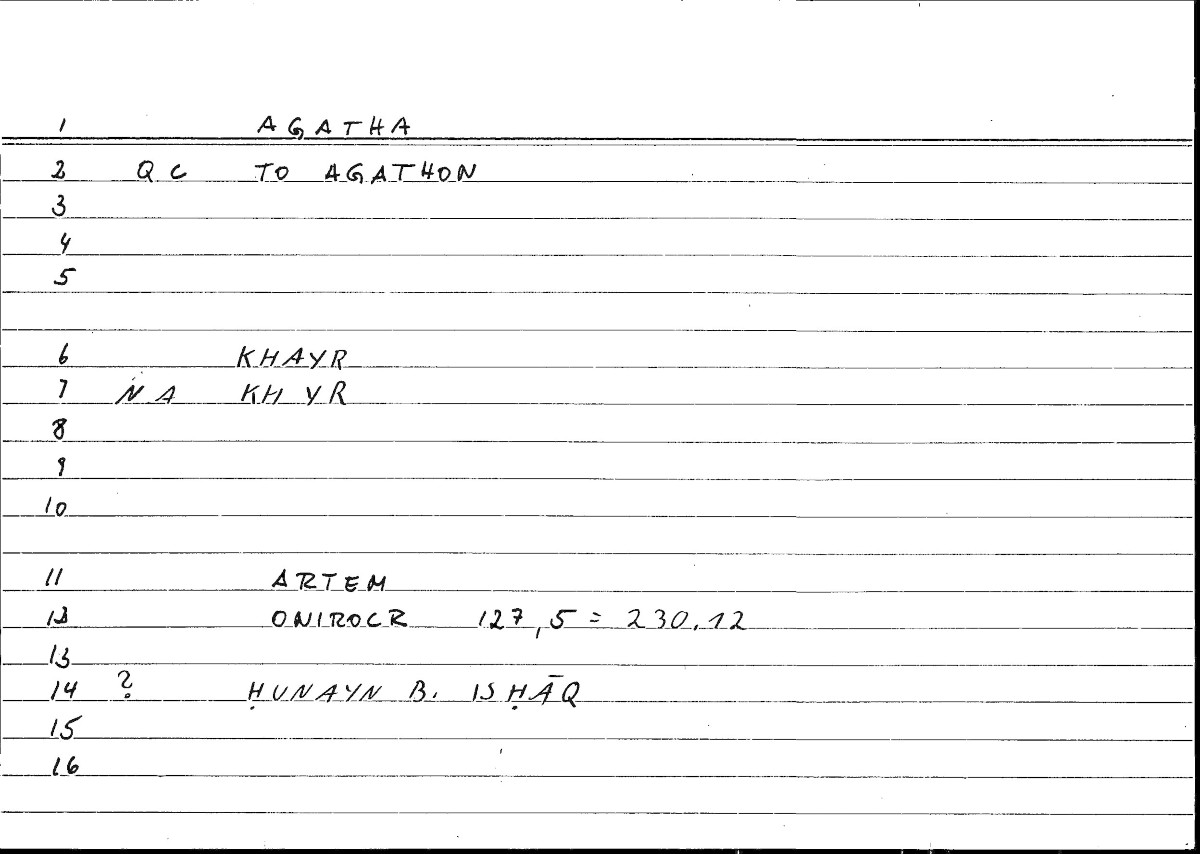 1 AGATHA
2 QC TO AGATHON
3
4
5
6 KHAYR
7 NA KH YR
8
9
10
11 ARTEM
12 ONIROCR 127,5 = 230.12
13
14 ? ḤUNAYN B. ISḤĀQ
15
16